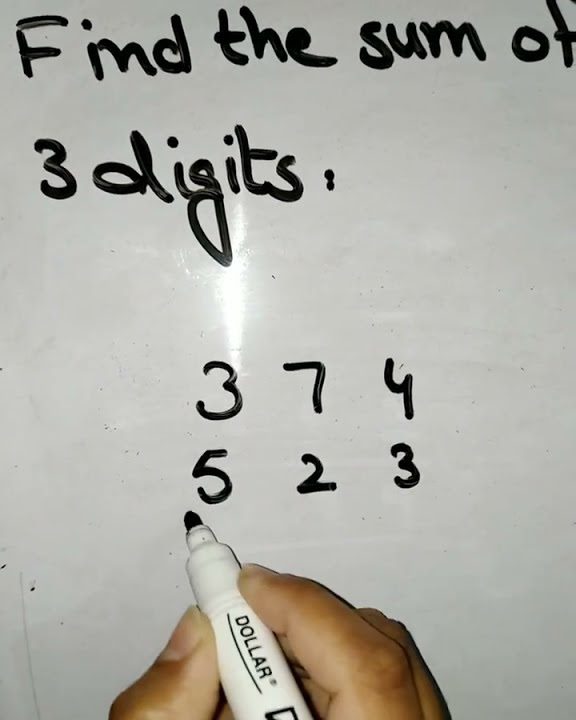 Find the sum of
3 digits:
3 7 4
5 2 3
DOLLAR®